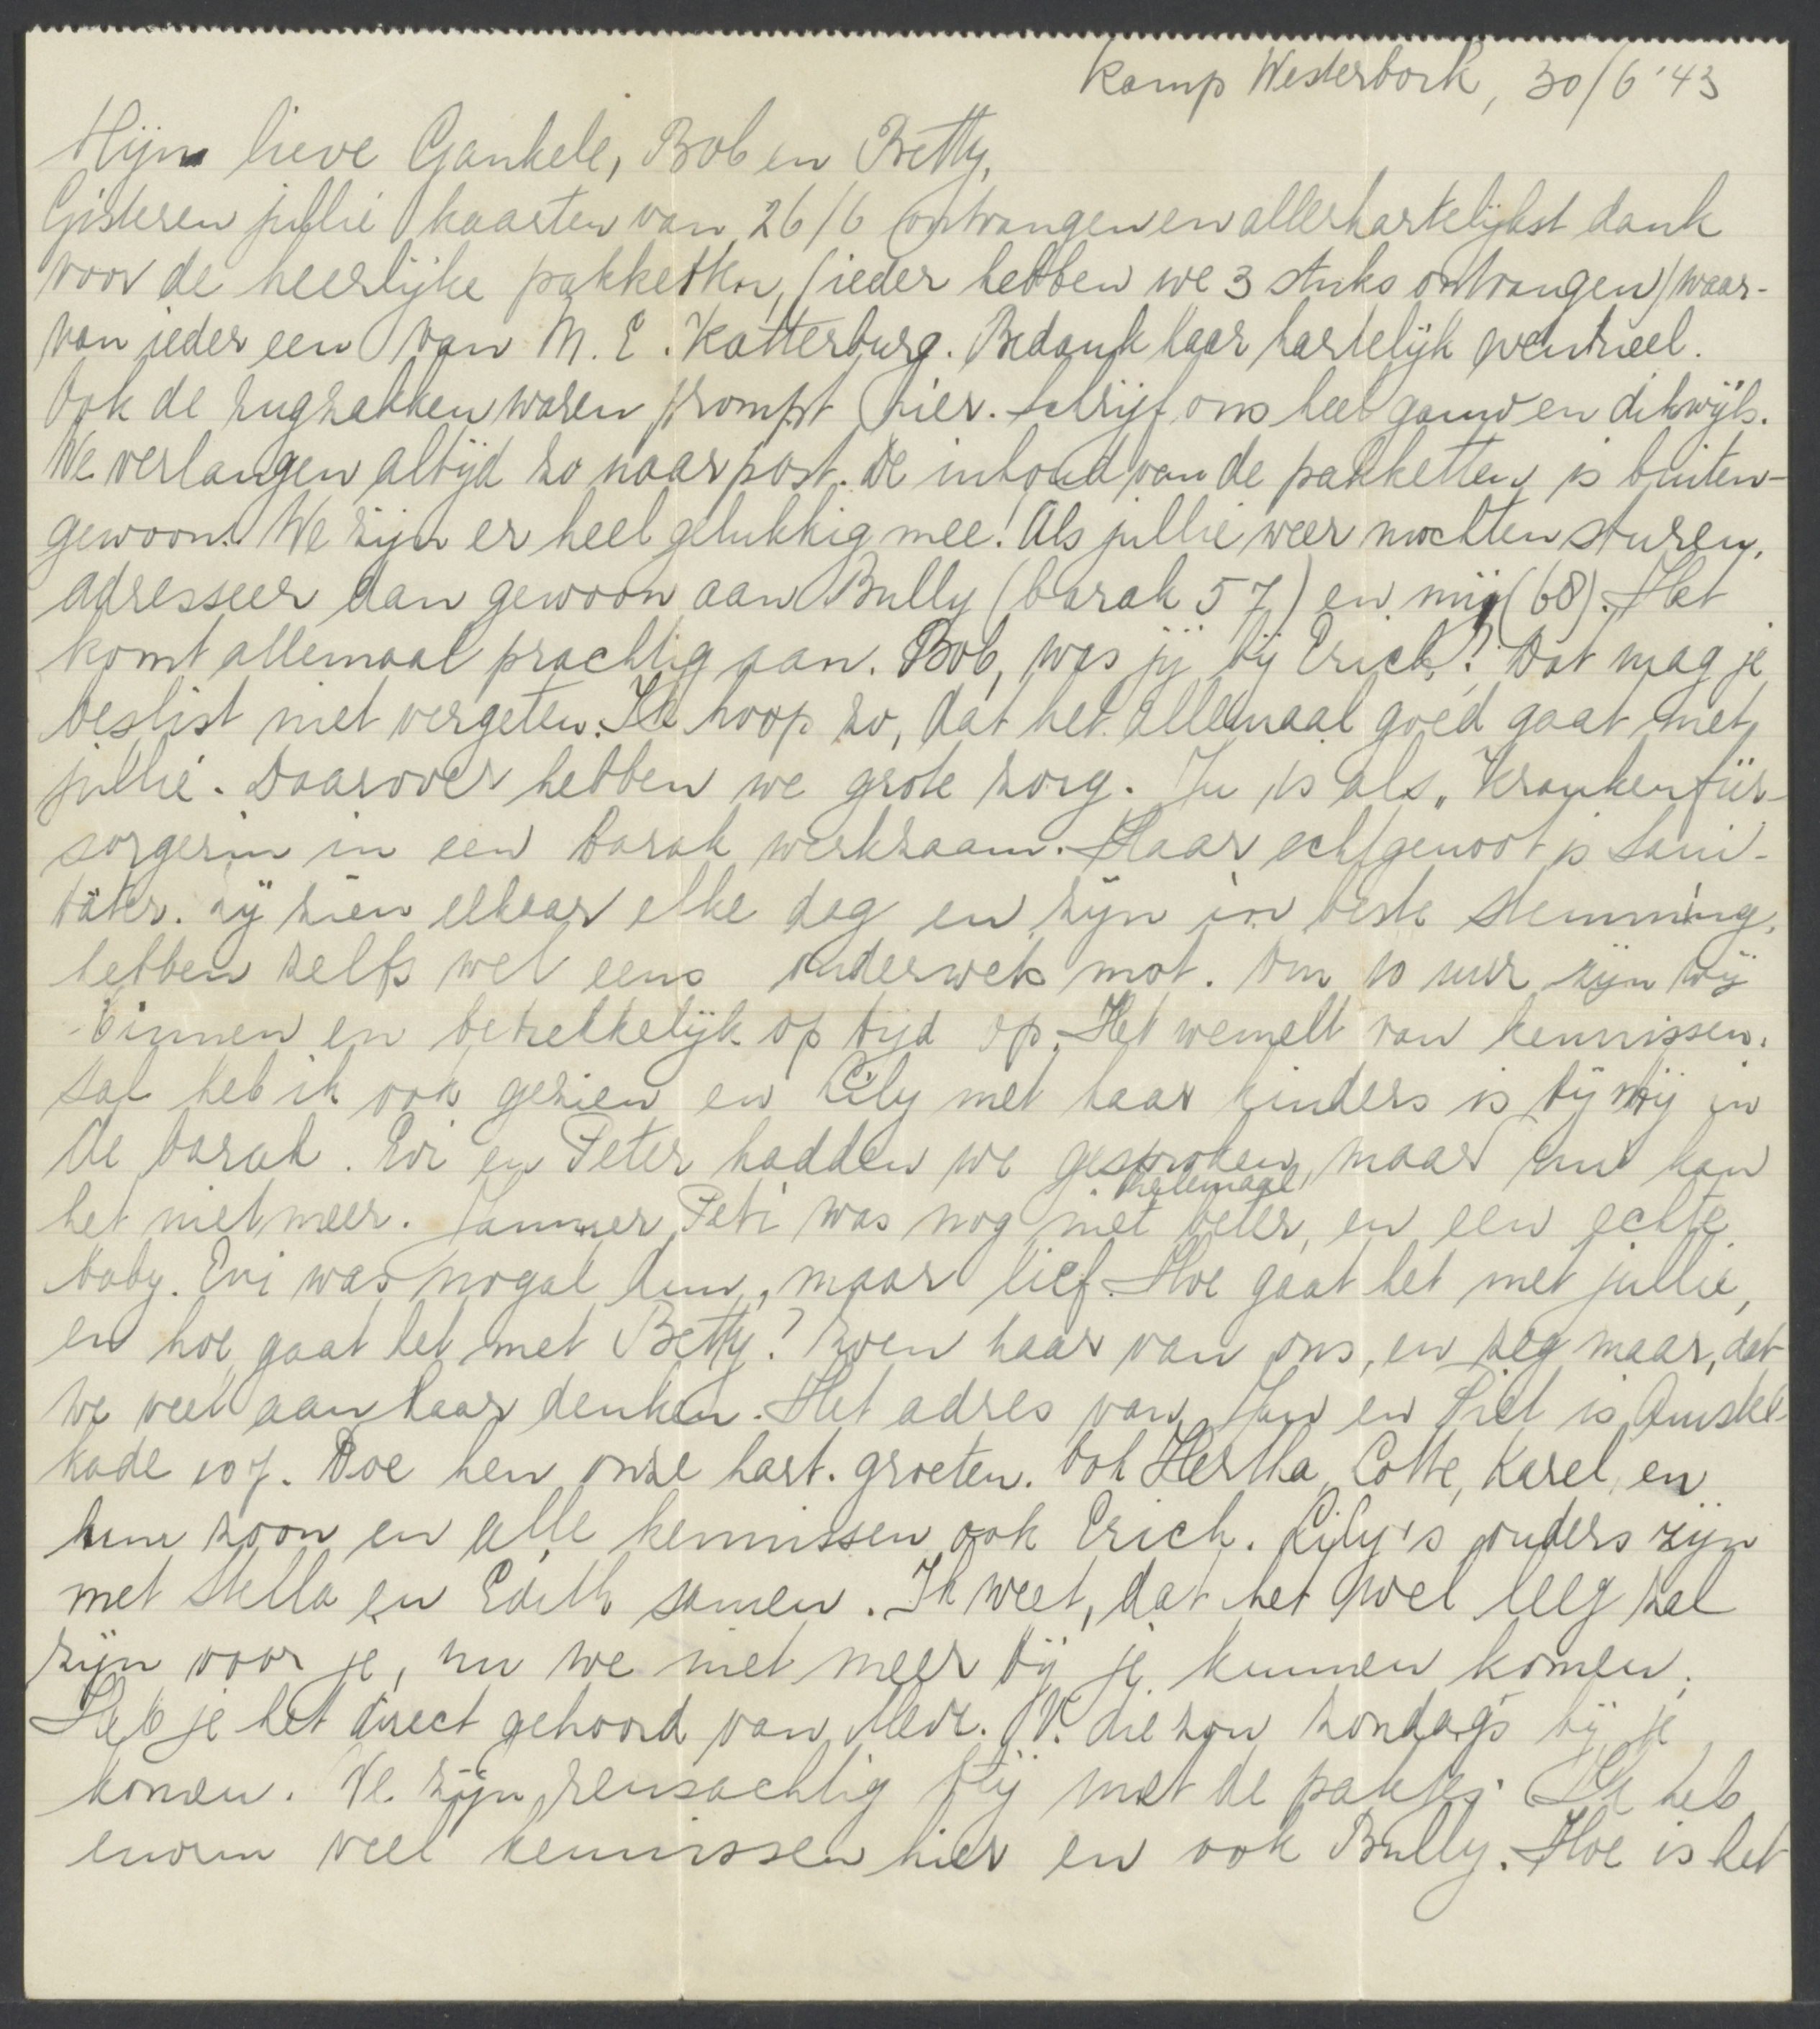 Kamp Westerbork, 30/6 '43
Mijn lieve Gankele, Bob en Betty,
Gisteren jullie kaarten van 26/6 ontvangen en allerhartelijkst dank
voor de heerlijke pakketten, (ieder hebben we 3 stuks ontvangen) waar-
van ieder een van M. E. Katterburg. Bedank haar hartelijk eventueel.
Ook de rugzakken waren prompt hier. Schrijf ons heel gauw en dikwijls.
We verlangen altijd zo naar post. De inhoud van de pakketten is buiten-
gewoon. We zijn er heel gelukkig mee! Als jullie weer mochten sturen,
adresseer dan gewoon aan Bully (barak 57) en mij (68). Het
komt allemaal prachtig aan. Bob, was jij bij Erich? Dat mag je
beslist niet vergeten. Ik hoop zo, dat het allemaal goed gaat met
jullie. Daarover hebben we grote zorg. Ju is als "Krankenfür-
sorgerin in een barak werkzaam. Haar echtgenoot is Sani-
täter. Zij zien elkaar elke dag en zijn in beste stemming,
hebben zelfs wel eens onderweks mot. Om 10 uur zijn wij
binnen en betrekkelijk op tijd op. Het wemelt van kennissen.
Sal heb ik ook gezien en Lily met haar kinders is bij mij in
de barak. Evi en Peter hadden we gesproken, maar nu kan
het niet meer. Jammer, Peti was nog niet helemaal beter, en een echte
baby. Evi was nogal dun, maar lief. Hoe gaat het met jullie,
en hoe gaat het met Betty? Zoen haar van ons, en zeg maar, dat
we veel aan haar denken. Het adres van Jan en Piet is Amstel-
kade 107. Doe hen onze hart. groeten. Ook Hertha, Lotte, Karel en
hun zoon en alle kennissen, ook Erich. Lily's ouders zijn
met Stella en Edith samen. Ik weet, dat het wel leeg zal
zijn voor je, nu we niet meer bij je kunnen komen.
Heb je het direct gehoord van Mevr. V. die zou zondags bij je
komen. We zijn reusachtig blij met de pakjes. Ik heb
enorm veel kennissen hier en ook Bully. Hoe is het